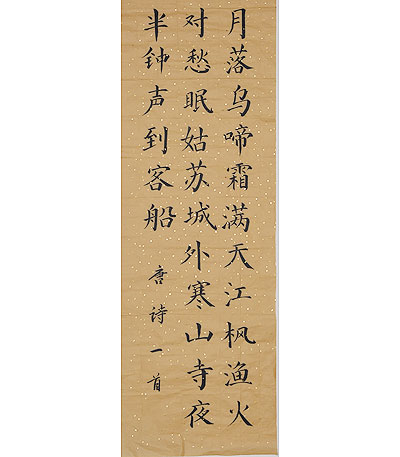 月落乌啼霜满天江枫渔火
对愁眠姑苏城外寒山寺夜
半钟声到客船
唐诗一首